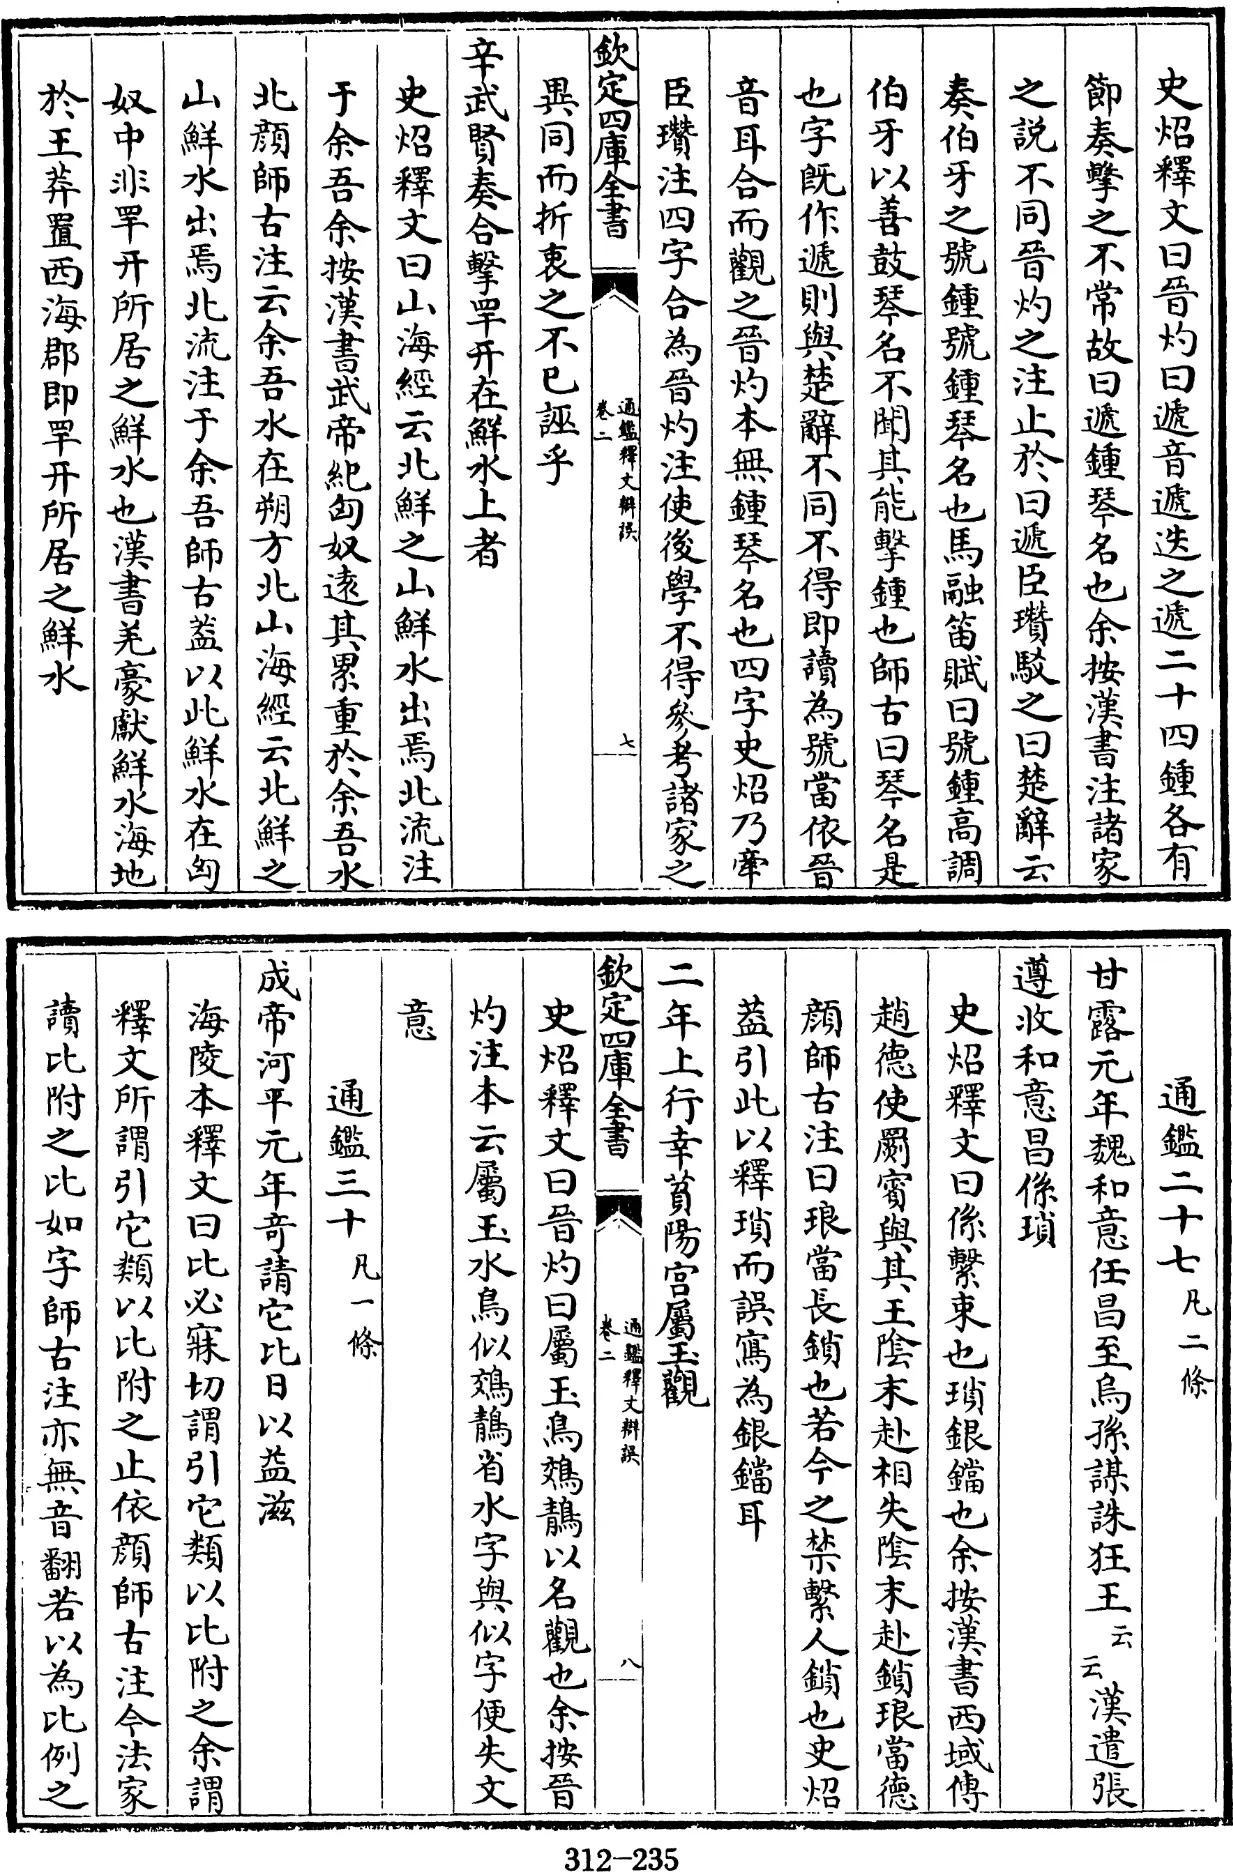 史炤釋文曰晉灼曰遞音遞迭之遞二十四鍾各有
節奏擊之不常故曰遞鍾琴名也余按漢書注諸家
之説不同晉灼之注止於曰遞臣瓚駁之曰楚辭云
奏伯牙之號鍾號鍾琴名也馬融笛賦曰號鍾高調
伯牙以善鼓琴名不聞其能擊鍾也師古曰琴名是
也字旣作遞則與楚辭不同不得即讀為號當依晉
音耳合而觀之晉灼本無鍾琴名也四字史炤乃牽
臣瓚注四字合為晉灼注使後學不得參考諸家之
欽定四庫全書
通鑑釋文辯誤
卷二
七
異同而折衷之不已誣乎
辛武賢奏合擊䍐幵在鮮水上者
史炤釋文曰山海經云北鮮之山鮮水出焉北流注
于余吾余按漢書武帝紀匈奴逺其累重於余吾水
北顔師古注云余吾水在朔方北山海經云北鮮之
山鮮水出焉北流注于余吾師古葢以此鮮水在匈
奴中非䍐幵所居之鮮水也漢書羌豪獻鮮水海地
於王莽置西海郡即䍐幵所居之鮮水
通鑑二十七凡二條
甘露元年魏和意任昌至烏孫謀誅狂王云云漢遣張
遵收和意昌係瑣
史炤釋文曰係繫束也瑣銀鐺也余按漢書西域傳
趙德使罽賓與其王陰末赴相失陰末赴鎖琅當德
顔師古注曰琅當長鎖也若今之禁繫人鎖也史炤
葢引此以釋瑣而誤寫為銀鐺耳
二年上行幸萯陽宮屬玉觀
欽定四庫全書
通鑑釋文辯誤
卷二
八
史炤釋文曰晉灼曰屬玉鳥鵁鶄以名觀也余按晉
灼注本云屬玉水鳥似鵁鶄省水字與似字便失文
意
通鑑三十凡一條
成帝河平元年竒請它比日以益滋
海陵本釋文曰比必寐切謂引它類以比附之余謂
釋文所謂引它類以比附之止依顔師古注今法家
讀比附之比如字師古注亦無音翻若以為比例之
312-235